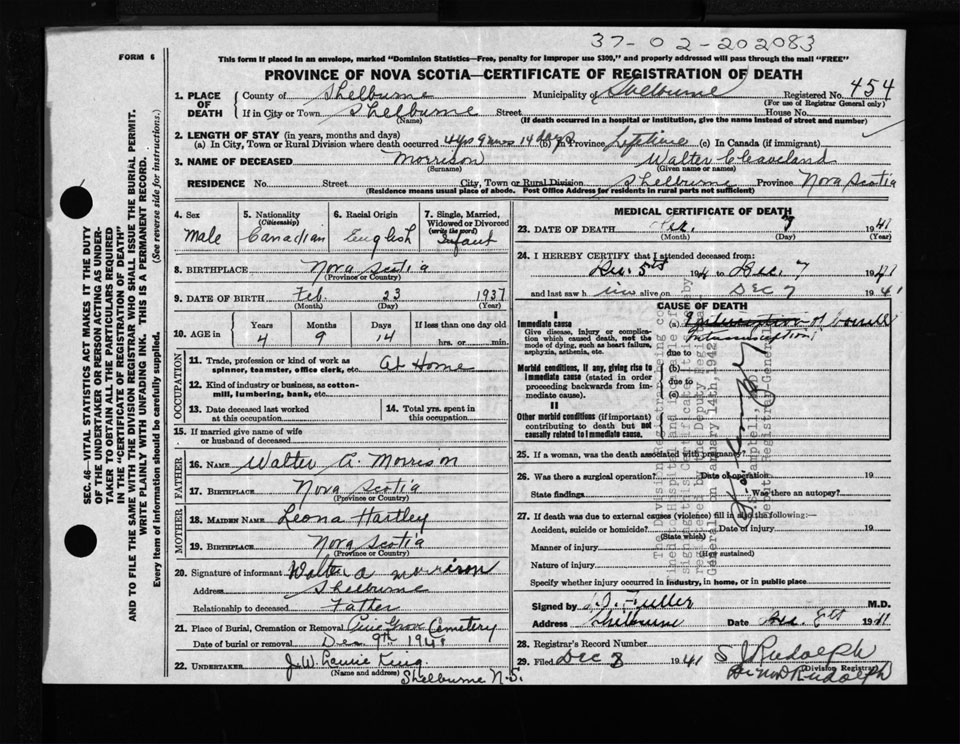 37-02-202083
FORM 6
This form if placed in an envelope, marked "Dominion Statistics—Free, penalty for improper use $300," and properly addressed will pass through the mail "FREE"
PROVINCE OF NOVA SCOTIA—CERTIFICATE OF REGISTRATION OF DEATH
1. PLACE OF DEATH
County of Shelburne Municipality of Shelburne Registered No. 454
(For use of Registrar General only)
If in City or Town Shelburne Street House No.
(Name) (If death occurred in a hospital or institution, give the name instead of street and number)
2. LENGTH OF STAY (in years, months and days)
(a) In City, Town or Rural Division where death occurred 4 yrs 9 mos 14 days (b) In Province Lifetime (c) In Canada (if immigrant)
3. NAME OF DECEASED Morrison Walter Cleaveland
(Surname) (Given name or names)
RESIDENCE No. Street City, Town or Rural Division Shelburne Province Nova Scotia
(Residence means usual place of abode. Post Office Address for residents in rural parts not sufficient)
4. Sex
Male
5. Nationality
(Citizenship)
Canadian
6. Racial Origin
English
7. Single, Married, Widowed or Divorced
(write the word)
Infant
8. BIRTHPLACE Nova Scotia
(Province or Country)
9. DATE OF BIRTH Feb. 23 1937
(Month) (Day) (Year)
10. AGE in Years Months Days If less than one day old
4 9 14 hrs. or min.
OCCUPATION
11. Trade, profession or kind of work as spinner, teamster, office clerk, etc. At Home
12. Kind of industry or business, as cotton-mill, lumbering, bank, etc.
13. Date deceased last worked at this occupation
14. Total yrs. spent in this occupation
15. If married give name of wife or husband of deceased
FATHER
16. Name Walter A. Morrison
17. Birthplace Nova Scotia
(Province or Country)
MOTHER
18. Maiden Name Leona Hartley
19. Birthplace Nova Scotia
(Province or Country)
20. Signature of informant Walter A Morrison
Address Shelburne
Relationship to deceased Father
21. Place of Burial, Cremation or Removal Pine Grove Cemetery
Date of burial or removal Dec 9th 1941
22. UNDERTAKER J. W. Laurie King
(Name and address) Shelburne N.S.
MEDICAL CERTIFICATE OF DEATH
23. DATE OF DEATH 7 1941
(Month) (Day) (Year)
24. I HEREBY CERTIFY that I attended deceased from:
Dec. 5th to Dec. 7 1941
and last saw him alive on Dec 7 1941
CAUSE OF DEATH
I
Immediate cause
Give disease, injury or complication which caused death, not the mode of dying, such as heart failure, asphyxia, asthenia, etc.
(a)
Intussusception
due to
Morbid conditions, if any, giving rise to immediate cause (stated in order proceeding backwards from immediate cause).
(b)
due to
(c)
II
Other morbid conditions (if important) contributing to death but not causally related to immediate cause.
25. If a woman, was the death associated with pregnancy?
26. Was there a surgical operation? Date of operation 19
State findings Was there an autopsy?
27. If death was due to external causes (violence) fill in also the following:—
Accident, suicide or homicide? Date of injury 19
(State which)
Manner of injury
(How sustained)
Nature of injury
Specify whether injury occurred in industry, in home, or in public place
Signed by Fuller M.D.
Address Shelburne Date Dec. 8th 1941
28. Registrar's Record Number
29. Filed Dec 8 1941 S J Rudolph
Division Registrar
SEC. 46—VITAL STATISTICS ACT MAKES IT THE DUTY
OF THE UNDERTAKER OR PERSON ACTING AS UNDER-
TAKER TO OBTAIN ALL THE PARTICULARS REQUIRED
IN THE "CERTIFICATE OF REGISTRATION OF DEATH"
AND TO FILE THE SAME WITH THE DIVISION REGISTRAR WHO SHALL ISSUE THE BURIAL PERMIT.
WRITE PLAINLY WITH UNFADING INK. THIS IS A PERMANENT RECORD.
Every item of information should be carefully supplied. (See reverse side for instructions.)